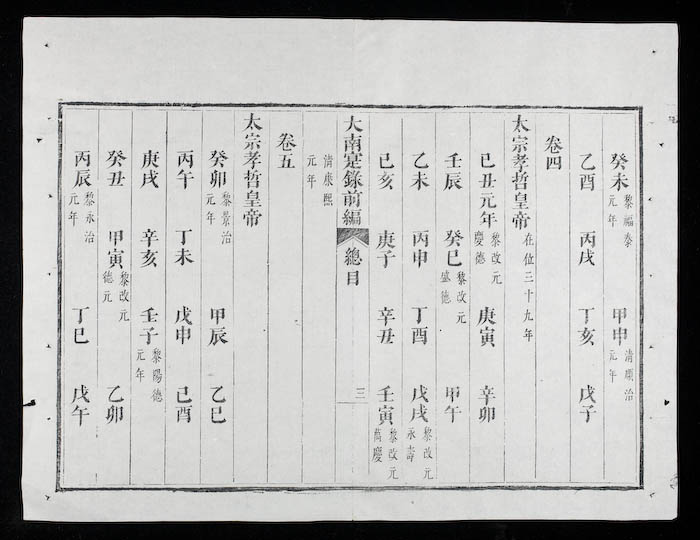 癸未黎福泰元年 甲申清順治元年
乙酉 丙戌 丁亥 戊子
卷四
太宗孝哲皇帝在位三十九年
己丑元年黎改元慶德 庚寅 辛卯
壬辰 癸巳黎改元盛德 甲午
乙未 丙申 丁酉 戊戌黎改元永壽
己亥 庚子 辛丑 壬寅黎改元萬慶
大南寔錄前編 總目 三
清康熙元年
卷五
太宗孝哲皇帝
癸卯黎景治元年 甲辰 乙巳
丙午 丁未 戊申 己酉
庚戌 辛亥 壬子黎陽德元年
癸丑 甲寅黎改元德元 乙卯
丙辰黎永治元年 丁巳 戊午